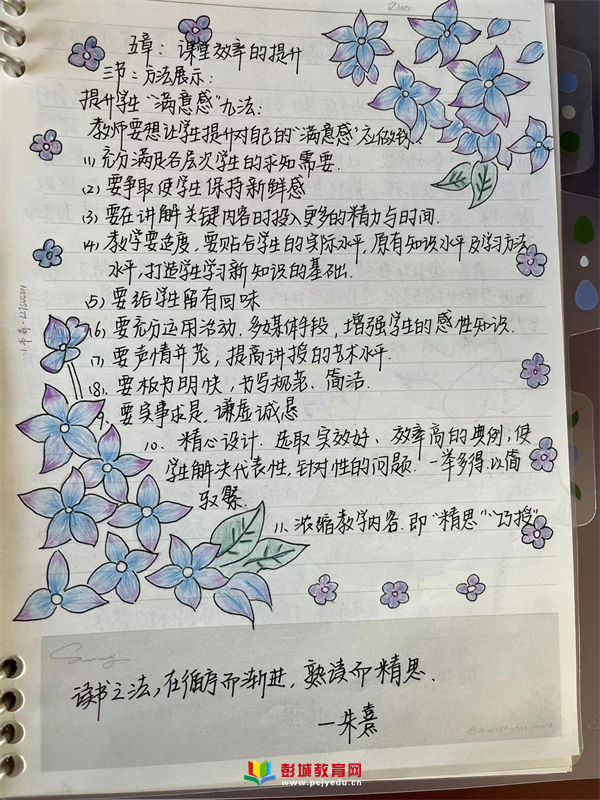 Date
五章：课堂效率的提升
三节：方法展示：
提升学生“满意感”九法：
教师要想让学生提升对自己的“满意感”应做到：
(1) 充分满足各层次学生的求知需要.
(2) 要争取使学生保持新鲜感
(3) 要在讲解关键内容时投入更多的精力与时间.
(4) 教学要适度，要贴合学生的实际水平，原有知识水平及学习方法
水平，打造学生学习新知识的基础.
(5) 要给学生留有回味
(6) 要充分运用活动、多媒体手段，增强学生的感性知识.
(7) 要声情并茂，提高讲授的艺术水平.
(8)、要板书明快，书写规范、简洁.
9、要实事求是，谦虚诚恳
10、精心设计.选取实效好、效率高的典例，使
学生解决代表性，针对性的问题.一举多得.以简
驭繁.
11、浓缩教学内容.即“精思”“巧授”
读书之法，在循序而渐进，熟读而精思.
—朱熹
彭城教育网
www.pcjyedu.cn